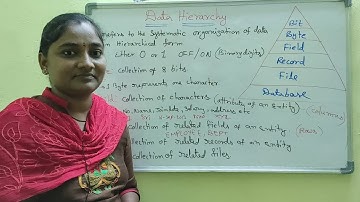 Data Hierarchy
refers to the systematic organization of data
in Hierarchical form
Either 0 or 1 OFF/ON (Binary digits)
collection of 8 bits.
1 Byte represents one character
collection of characters (attribute of an entity) (columns)
No, Name, Job, Salary, address etc
collection of related fields of an entity (Rows)
EMPLOYEE, DEPT
collection of related records of an entity
collection of related files
Bit
Byte
Field
Record
File
Database